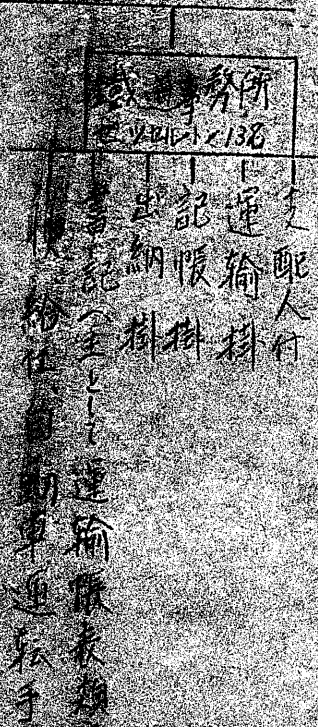 鉄道事務所
支配人付
運輸掛
記帳掛
出納掛
書記(主として運輸帳表類
給仕、自動車運転手